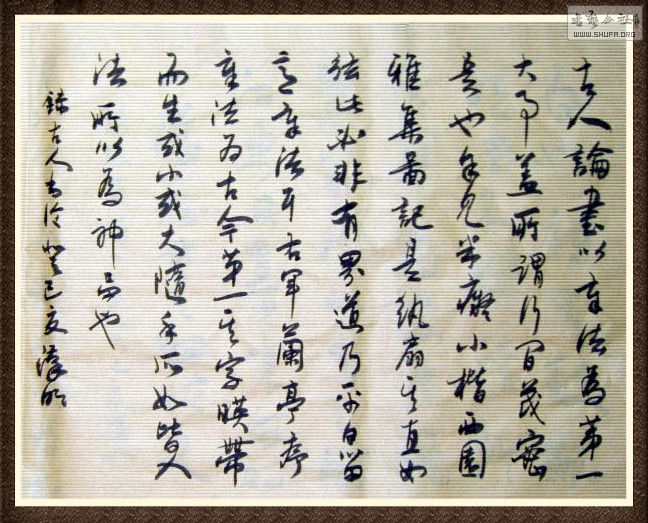 古人論書以章法為第一
大事蓋所謂行間茂密
是也余見米癡小楷西園
雅集圖記是紈扇其直如
弦此必非有界道乃平日留
意章法耳右軍蘭亭序
章法为古今第一其字暎帶
而生或小或大隨手所如皆入
法所以為神品也
錄古人書論癸巳夏
WWW.SHUFA.ORG